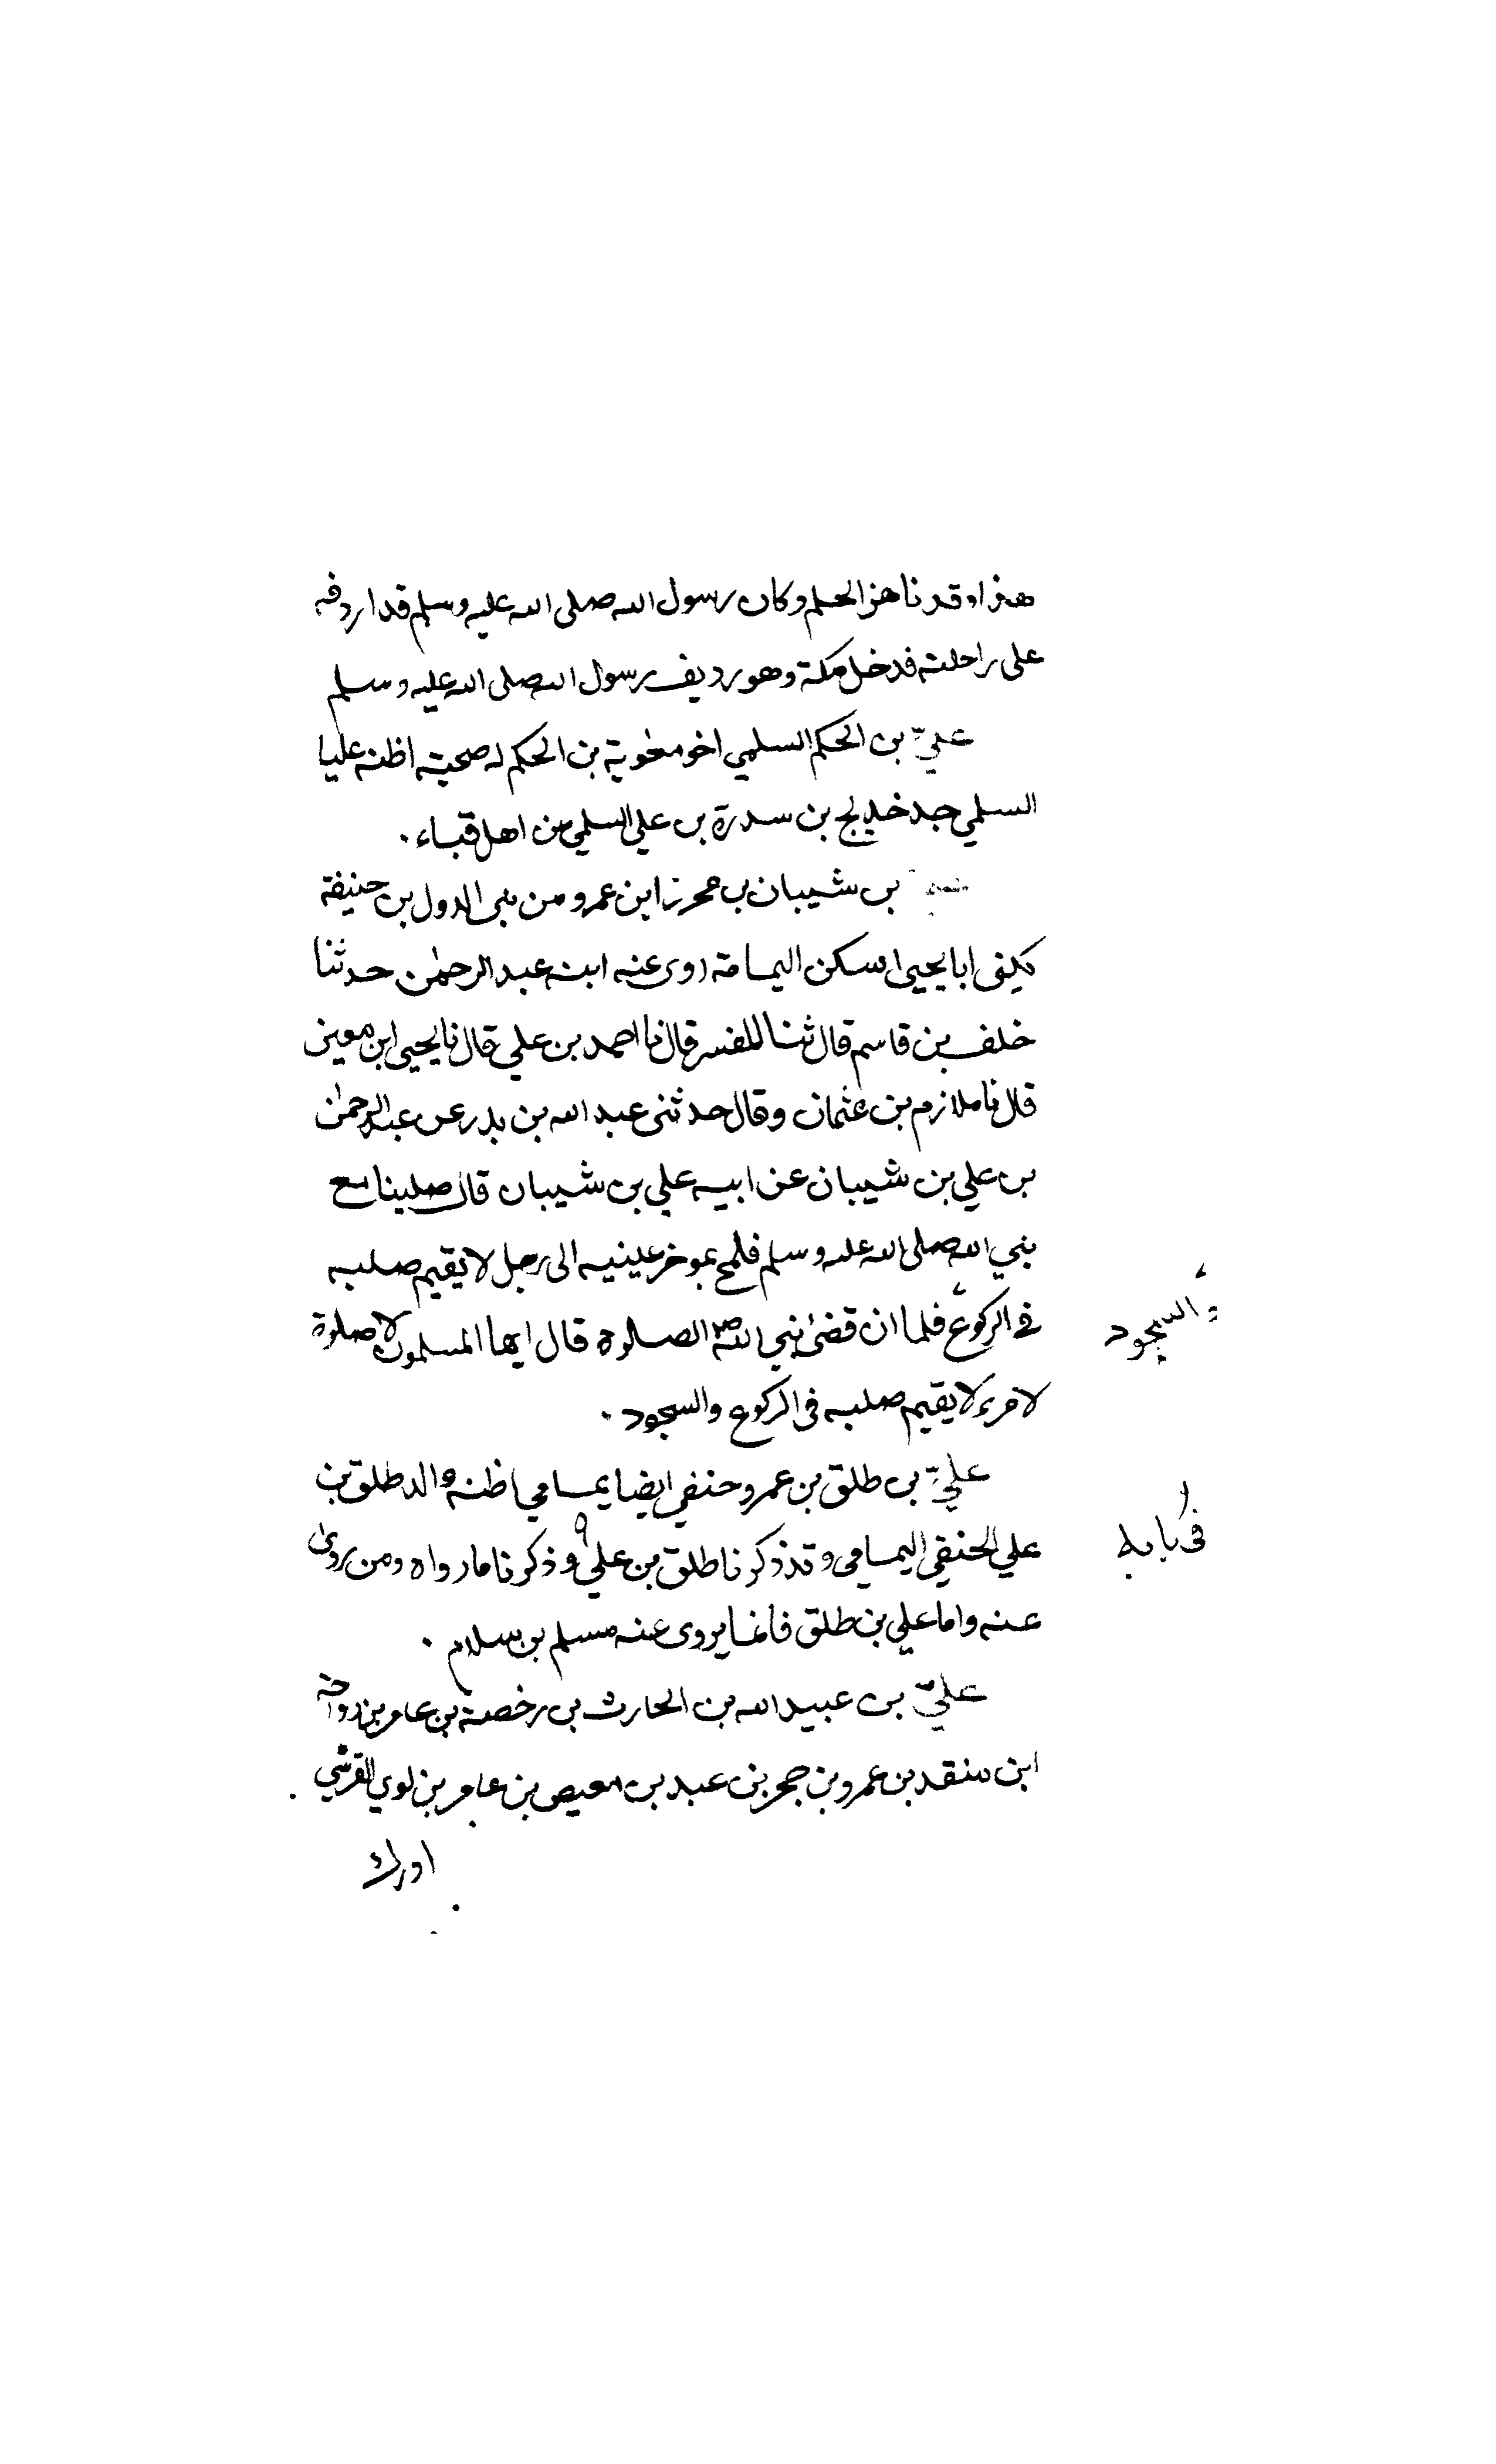 هذا وقد ناهز الحلم وكان رسول الله صلى الله عليه وسلم قد اردفه
على راحلته فدخل مكة وهو رديف رسول الله صلى الله عليه وسلم
عليّ بن الحكم السلمي اخو معوية بن الحكم له صحبة اظنه عليا
السلمي جد خديج بن سدرة بن علي السلمي من اهل قباء .
بن شيبان بن محرز ابن عمرو من بني الدول بن حنيفة
يكنى ابا يحيى سكن اليمامة روى عنه ابنه عبد الرحمٰن حدثنا
خلف بن قاسم قال ثنا قال نا احمد بن علي قال نا يحيى ابن معين
قال نا ملازم بن عثمان وقال حدثنى عبد الله بن بدر عن عبد الرحمٰن
بن علي بن شيبان عن ابيه علي بن شيبان قال صلينا مع
نبي الله صلى الله عليه وسلم فلمح بموخر عينيه الى رجل لا يقيم صلبه
في الركوع فلما ان قضىٰ نبي الله ص الصلوة قال ايها المسلمون لا صلوة
والسجود
لامرء لا يقيم صلبه في الركوع والسجود .
عليّ بن طلق بن عمرو حنفي ايضا يمامي اظنه والد طلق بن
علي الحنفي اليمامي وقد ذكرنا طلق بن علي وذكرنا ما رواه ومن روىٰ
في بابه
عنه واما علي بن طلق فانما يروى عنه مسلم بن سلام .
عليّ بن عبيد الله بن الحارث بن رخصة بن عامر بن رواحة
ابن منقد بن عمرو بن حجر بن عبد بن معيص بن عامر بن لوي القرشي .
ادرك